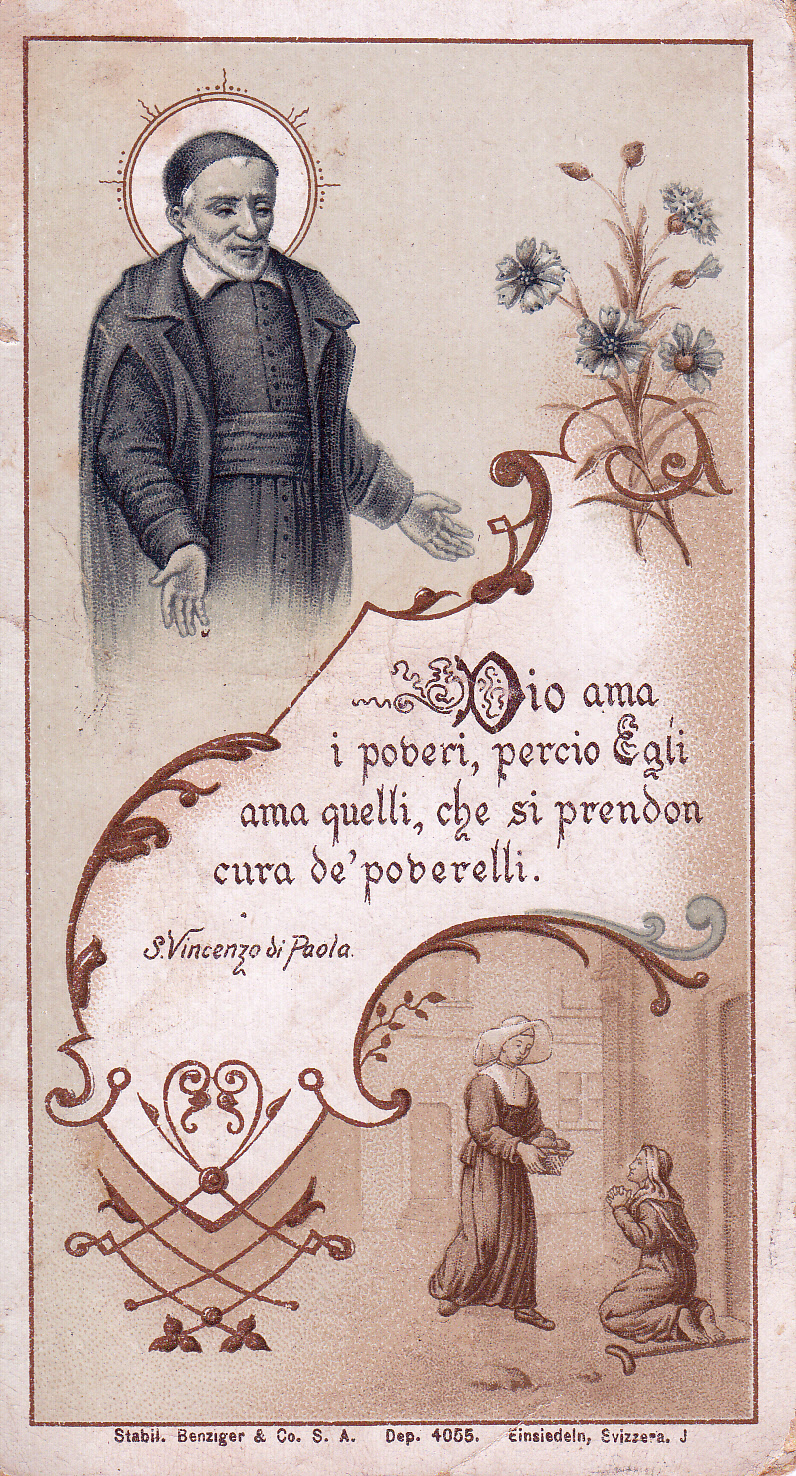 Dio ama
i poveri, percio Egli
ama quelli, che si prendon
cura de' poverelli.
S. Vincenzo di Paola.
Stabil. Benziger & Co. S. A. Dep. 4055. Einsiedeln, Svizzera. J